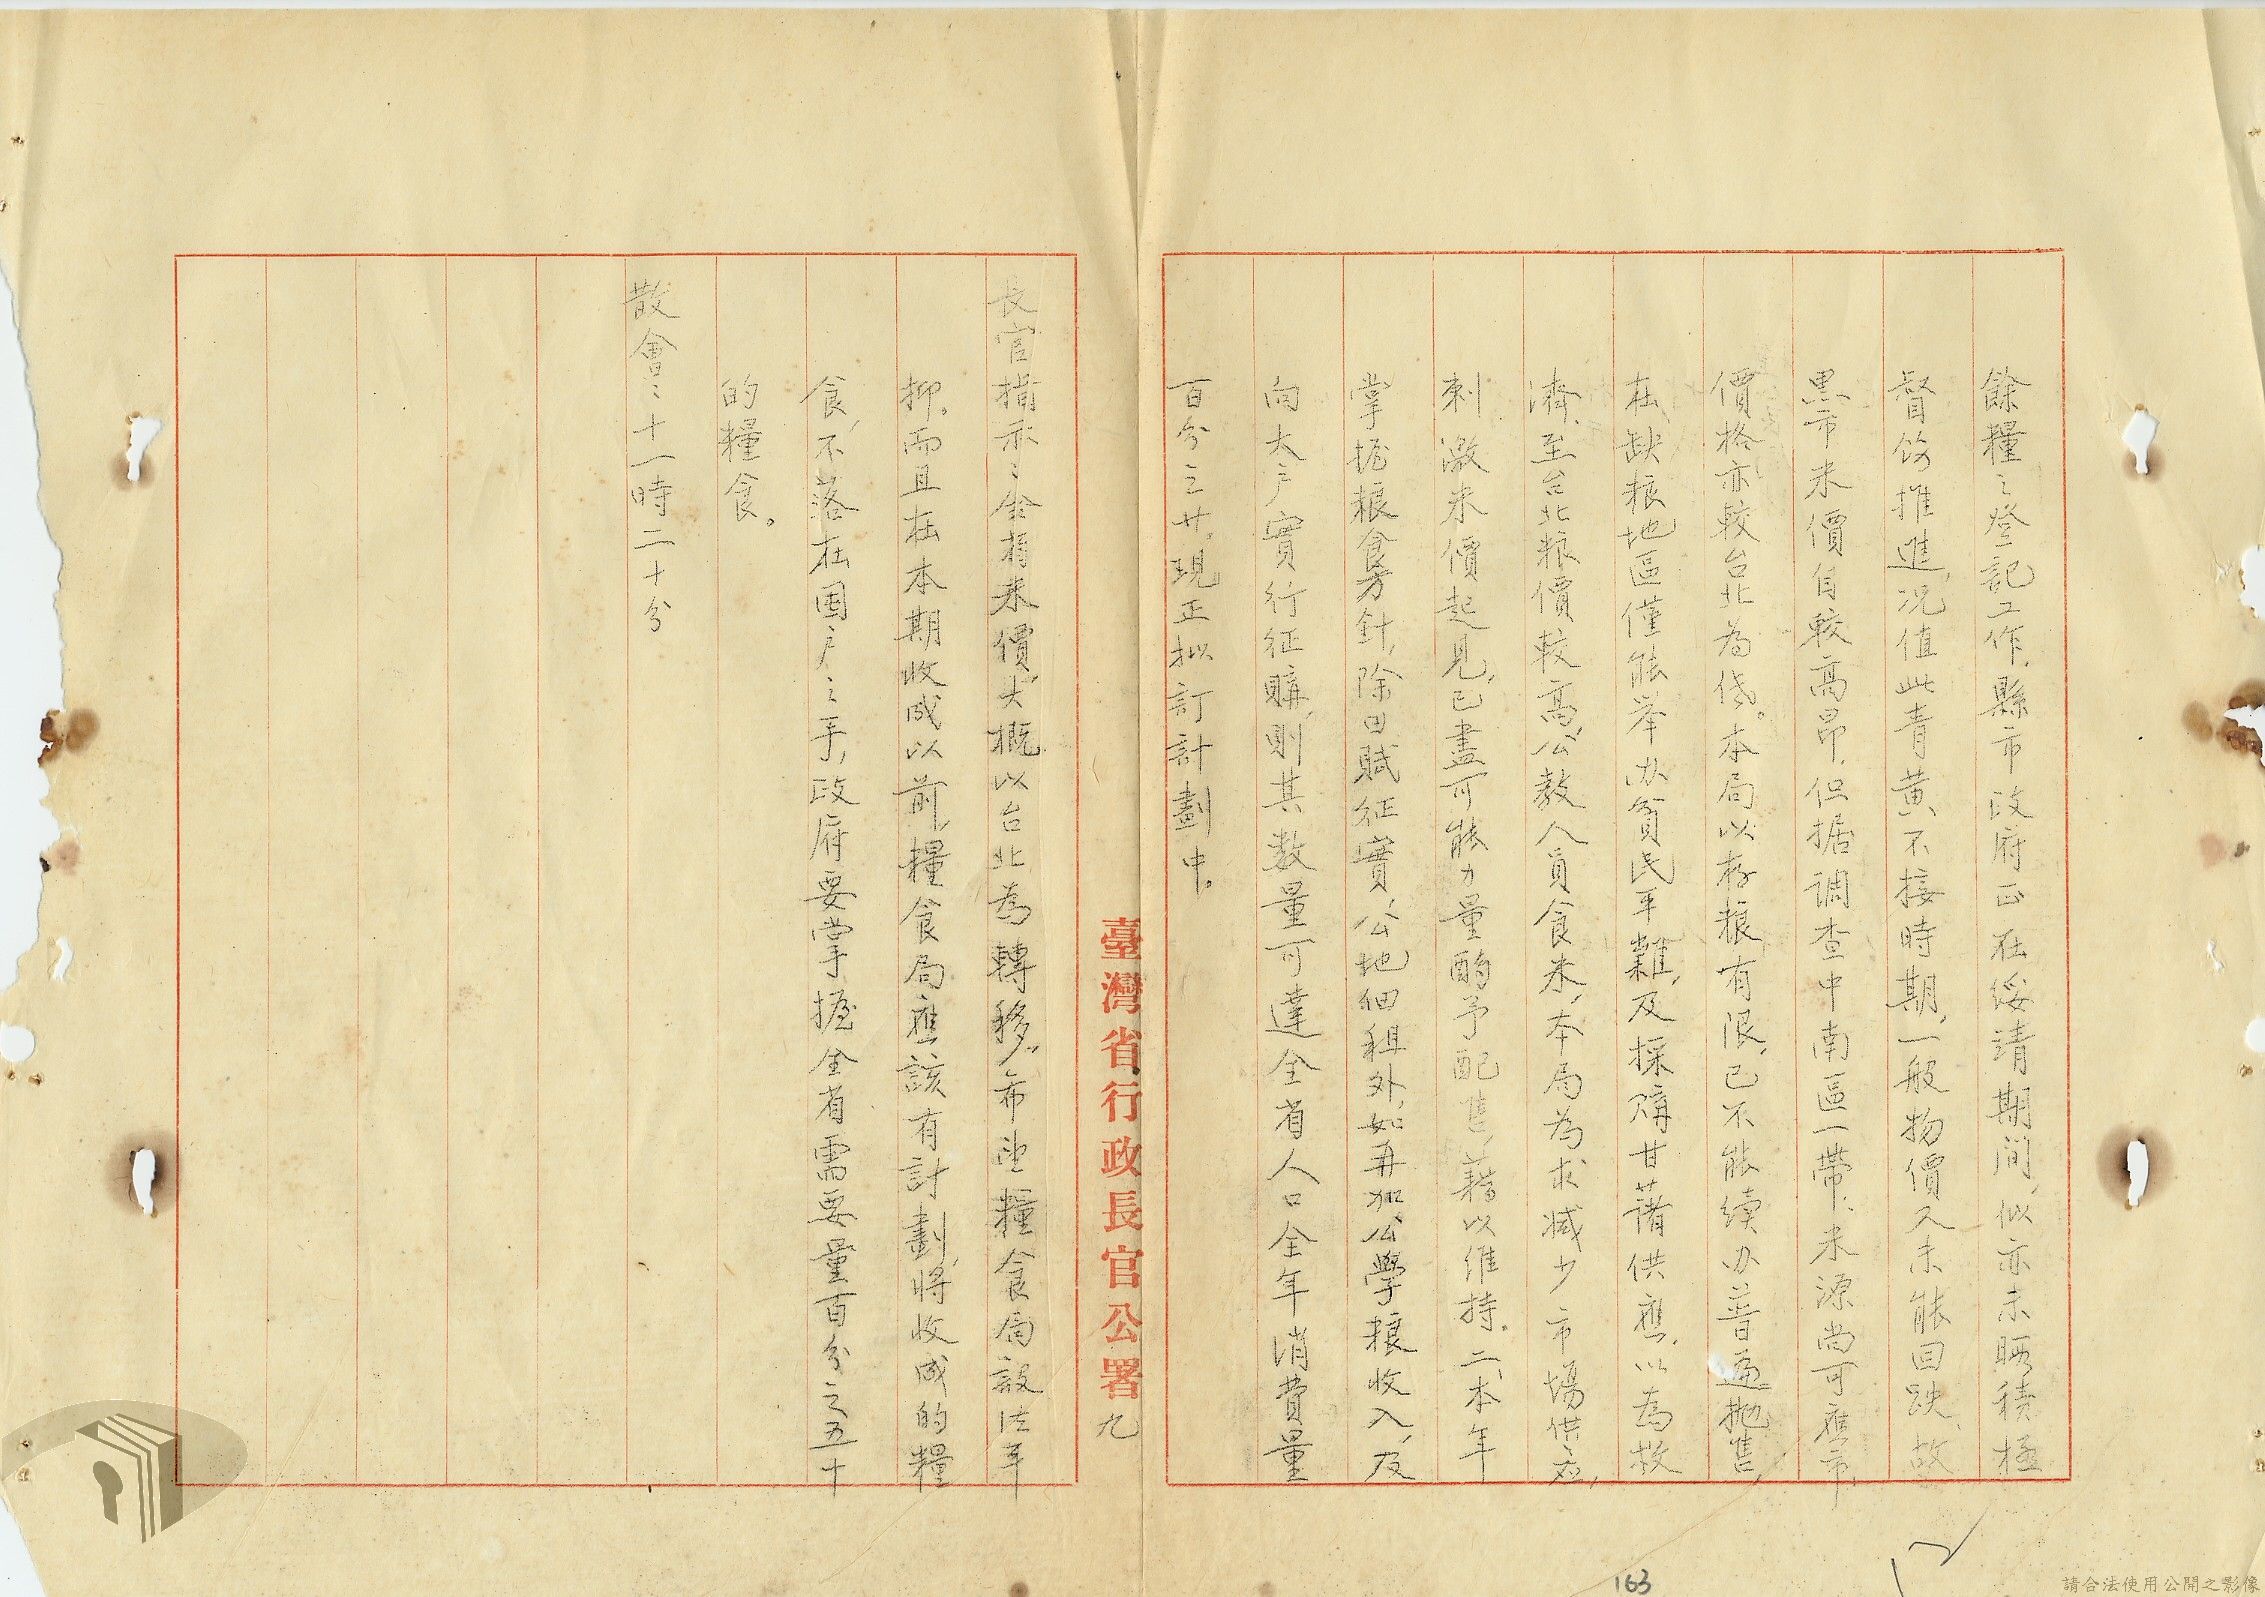 餘糧之登記工作，縣市政府正在綏靖期間，似亦未暇積極
督飭推進，況值此青黃不接時期，一般物價又未能回跌，故
黑市米價自較高昂，但据调查中南區一帶，米源尚可應市，
價格亦較台北為低。本局以存粮有限，已不能續办普遍抛售，
在缺粮地區僅能举办貧民平糶，及採购甘藷供應，以為救
濟，至台北粮價較高，公教人員食米，本局為求减少市場供应，
刺激米價起見，已盡可能力量酌予配售，藉以維持。二、本年
掌握粮食方針，除田賦征實，公地佃租外，如再加公學粮收入，及
向大户實行征購，則其数量可達全省人口全年消費量
百分之廿。現正拟訂計劃中。
臺灣省行政長官公署 九
長官指示：全省米價，大概以台北為轉移，希望糧食局設法平
抑。而且在本期收成以前，糧食局應該有計劃，將收成的糧
食，不落在囤户之手，政府要掌握全省需要量百分之五十
的糧食。
散會：十一時二十分
163
請合法使用公開之影像